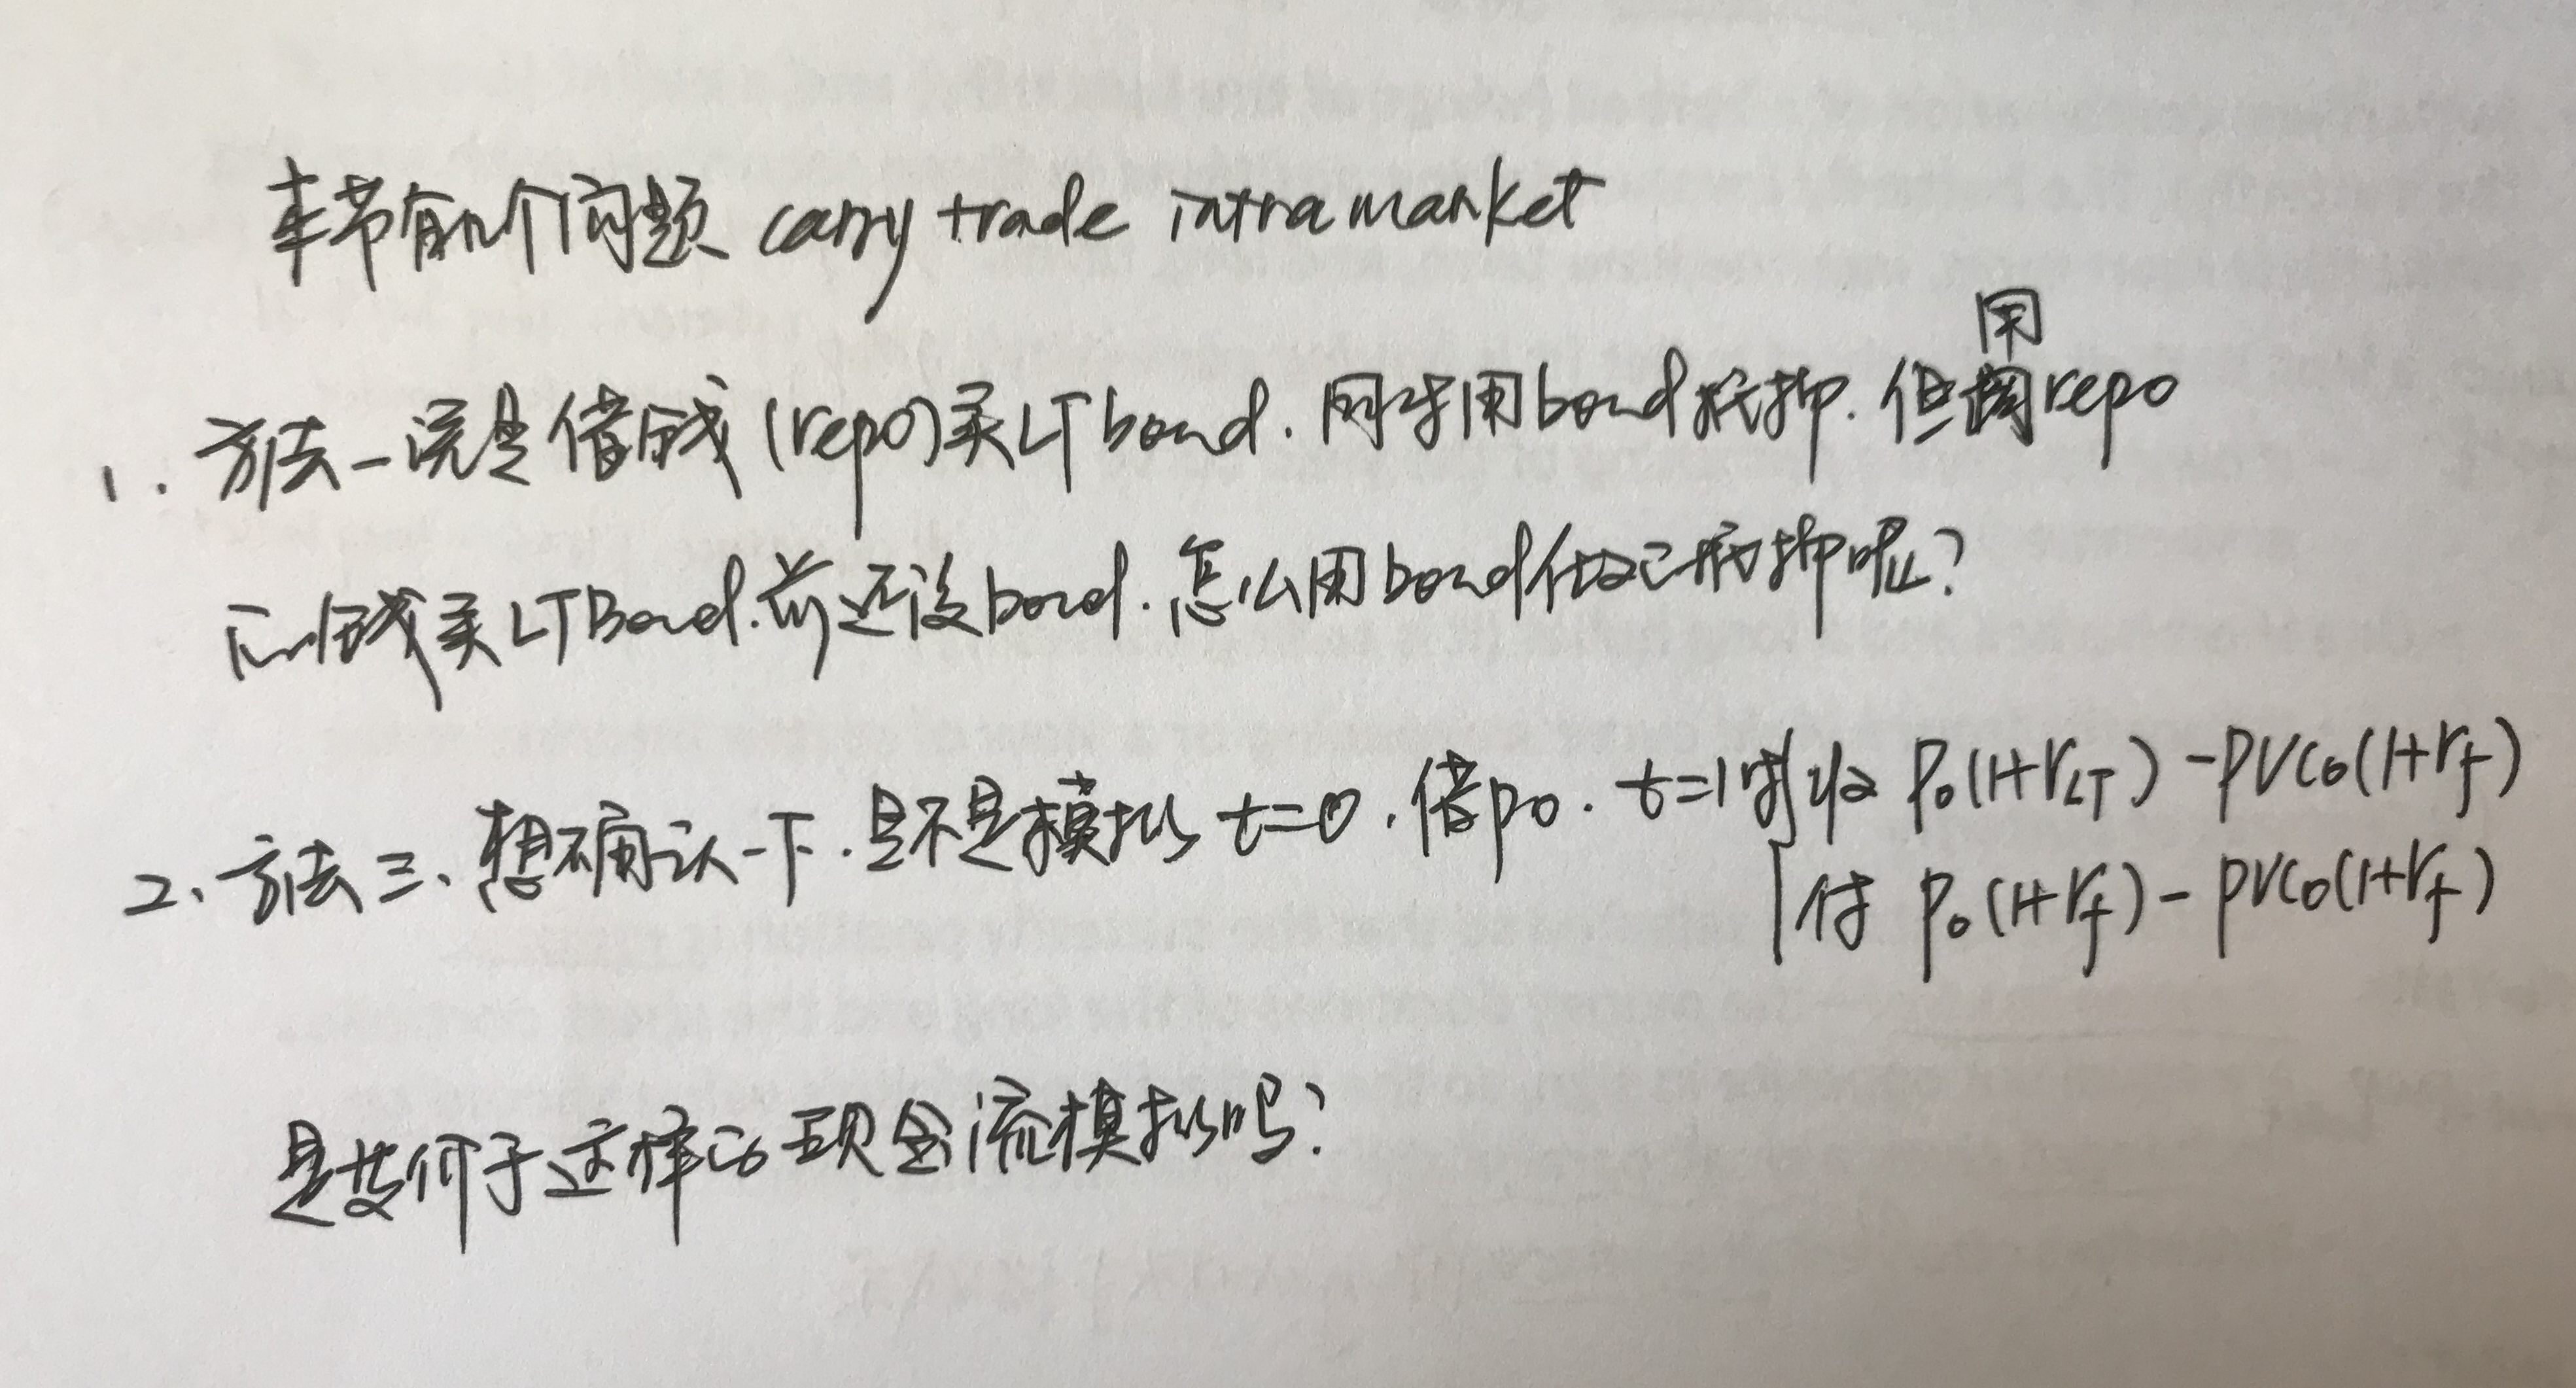 本节有几个问题 carry trade intra market
用
1. 方法一说是借钱(repo)买LT bond. 同时用bond抵押. 但用repo
的钱买LT Bond.前还没bond.怎么用bond做抵押呢?
2、方法三、想确认一下.是不是模拟 t=0.借p0. t=1时 收 P₀(1+r_LT) - PVC₀(1+r_f)
付 P₀(1+r_f) - PVC₀(1+r_f)
是基于这样的现金流模拟吗?